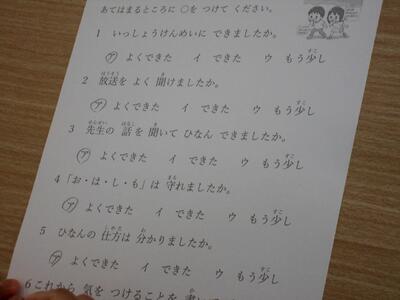 あてはまるところに ○を つけて ください。
1 いっしょうけんめいに できましたか。
ア よくできた イ できた ウ もう少し
2 放送を よく 聞けましたか。
ア よくできた イ できた ウ もう少し
3 先生の 話を 聞いて ひなん できましたか。
ア よくできた イ できた ウ もう少し
4 「お・は・し・も」は 守れましたか。
ア よくできた イ できた ウ もう少し
5 ひなんの 仕方は 分かりましたか。
ア よくできた イ できた ウ もう少し
6 これから 気を つけることを 書い